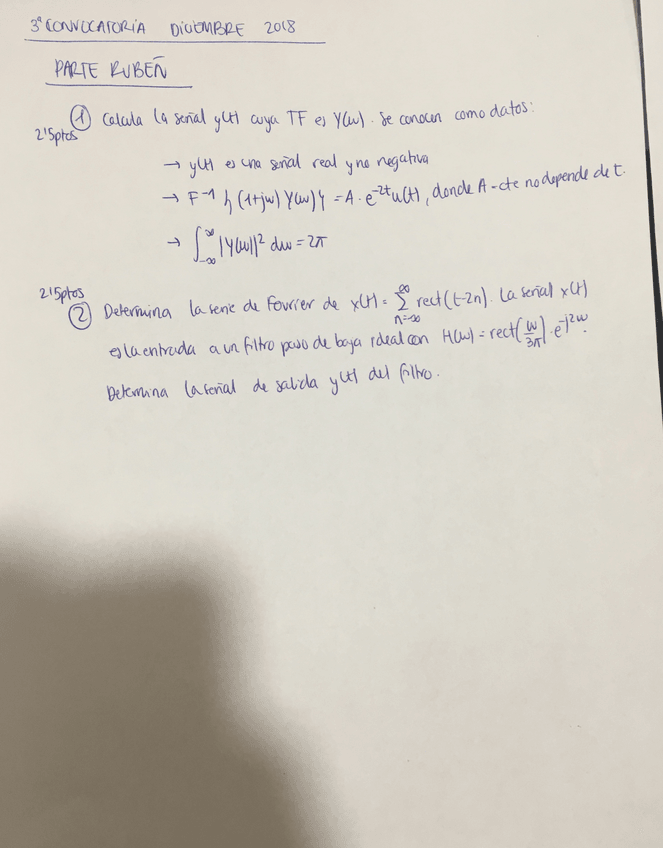 3ª CONVOCATORIA DICIEMBRE 2018
PARTE RUBEÑ
2'5ptos ① Calcula la señal y(t) cuya TF es Y(w). Se conocen como datos:
→ y(t) es una señal real y no negativa
→ F⁻¹ { (1+jw) Y(w) } = A · e^{-2t} u(t), donde A-cte no depende de t.
→ ∫_{-∞}^{∞} |Y(w)|² dw = 2π
2'5ptos ② Determina la serie de Fourier de x(t) = Σ_{n=-∞}^{∞} rect(t-2n). La señal x(t)
es la entrada a un filtro paso de baja ideal con H(w) = rect(w/3π) · e^{-j2w}.
Determina la señal de salida y(t) del filtro.